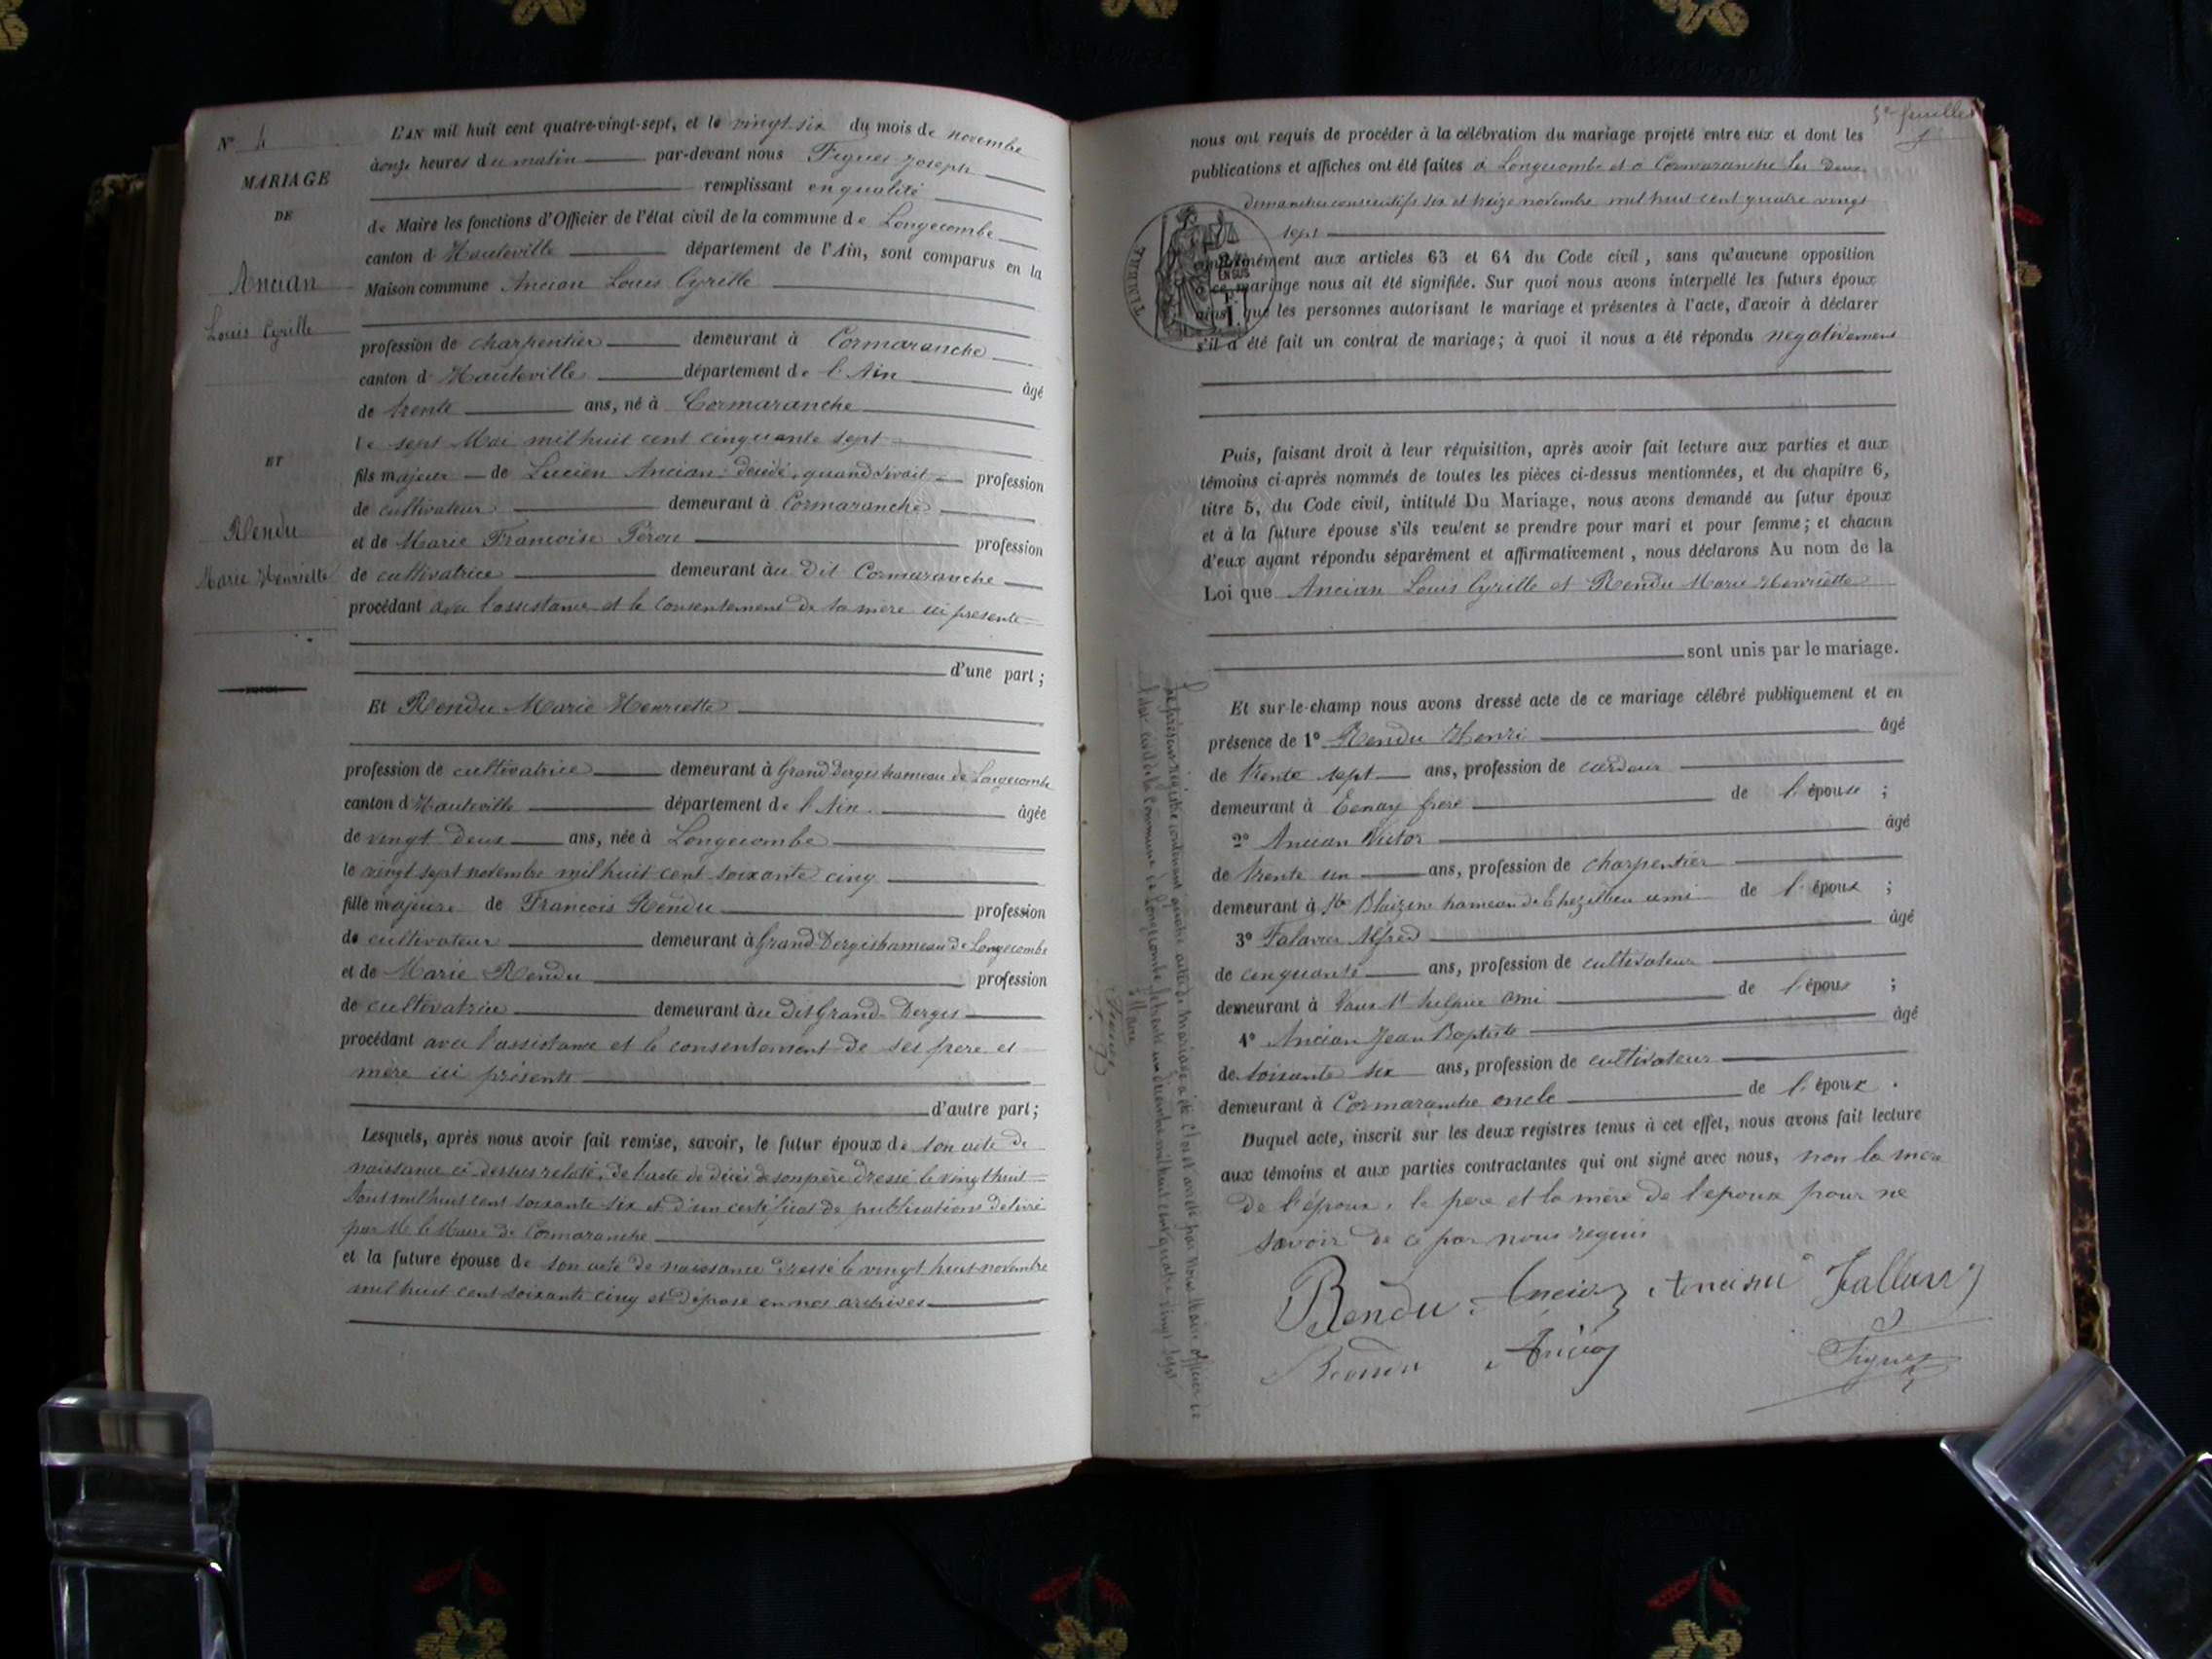 N° 4
MARIAGE
DE
Ancian
Louis Cyrille
ET
Rendu
Marie Henriette
L'AN mil huit cent quatre-vingt-sept, et le vingt six du mois de novembre
à onze heures du matin par-devant nous Figuet Joseph
remplissant en qualité
de Maire les fonctions d'Officier de l'état civil de la commune de Longecombe
canton d'Hauteville département de l'Ain, sont comparus en la
Maison commune Ancian Louis Cyrille
profession de charpentier demeurant à Cormaranche
canton d'Hauteville département de l'Ain âgé
de trente ans, né à Cormaranche
le sept Mai mil huit cent cinquante sept
fils majeur de Lucien Ancian décédé, quand vivait profession
de cultivateur demeurant à Cormaranche
et de Marie Françoise Péron profession
de cultivatrice demeurant au dit Cormaranche
procédant avec l'assistance et le consentement de sa mère ici présente
d'une part;
Et Rendu Marie Henriette
profession de cultivatrice demeurant à Grand Dergis hameau de Longecombe
canton d'Hauteville département de l'Ain âgée
de vingt deux ans, née à Longecombe
le vingt sept novembre mil huit cent soixante cinq
fille majeure de François Rendu profession
de cultivateur demeurant à Grand Dergis hameau de Longecombe
et de Marie Rendu profession
de cultivatrice demeurant au dit Grand Dergis
procédant avec l'assistance et le consentement de ses père et
mère ici présents
d'autre part;
Lesquels, après nous avoir fait remise, savoir, le futur époux de son acte de
naissance ci-dessus relaté, de l'acte de décès de son père dressé le vingt huit
Aout mil huit cent soixante six et d'un certificat de publications délivré
par Mr le Maire de Cormaranche
et la future épouse de son acte de naissance dressé le vingt huit novembre
mil huit cent soixante cinq et déposé en nos archives
5e feuillet
nous ont requis de procéder à la célébration du mariage projeté entre eux et dont les
publications et affiches ont été faites à Longecombe et à Cormaranche les deux
dimanches consécutifs six et treize novembre mil huit cent quatre vingt
sept
TIMBRE
EN SUS
conformément aux articles 63 et 64 du Code civil, sans qu'aucune opposition
à ce mariage nous ait été signifiée. Sur quoi nous avons interpellé les futurs époux
ainsi que les personnes autorisant le mariage et présentes à l'acte, d'avoir à déclarer
s'il a été fait un contrat de mariage; à quoi il nous a été répondu négativement
Puis, faisant droit à leur réquisition, après avoir fait lecture aux parties et aux
témoins ci-après nommés de toutes les pièces ci-dessus mentionnées, et du chapitre 6,
titre 5, du Code civil, intitulé Du Mariage, nous avons demandé au futur époux
et à la future épouse s'ils veulent se prendre pour mari et pour femme; et chacun
d'eux ayant répondu séparément et affirmativement, nous déclarons Au nom de la
Loi que Ancian Louis Cyrille et Rendu Marie Henriette
sont unis par le mariage.
Et sur-le-champ nous avons dressé acte de ce mariage célébré publiquement et en
présence de 1° Rendu Henri âgé
de trente sept ans, profession de cardeur
demeurant à Tenay frère de l'épouse;
2° Ancian Victor âgé
de trente un ans, profession de charpentier
demeurant à hameau de ami de l'époux;
3° Alfred âgé
de cinquante ans, profession de cultivateur
demeurant à Vaux St Sulpice ami de l'époux;
4° Ancian Jean Baptiste âgé
de soixante six ans, profession de cultivateur
demeurant à Cormaranche oncle de l'époux.
Duquel acte, inscrit sur les deux registres tenus à cet effet, nous avons fait lecture
aux témoins et aux parties contractantes qui ont signé avec nous, non la mère
de l'époux, le père et la mère de l'épouse pour ne
savoir de ce par nous requis
Rendu Ancian Ancian
Rendu Ancian Figuet
Le présent registre contenant quatre actes de mariage a été clos et arrêté par nous Maire officier de
l'état civil de la commune de Longecombe le trente un décembre mil huit cent quatre vingt sept
Le Maire
Figuet